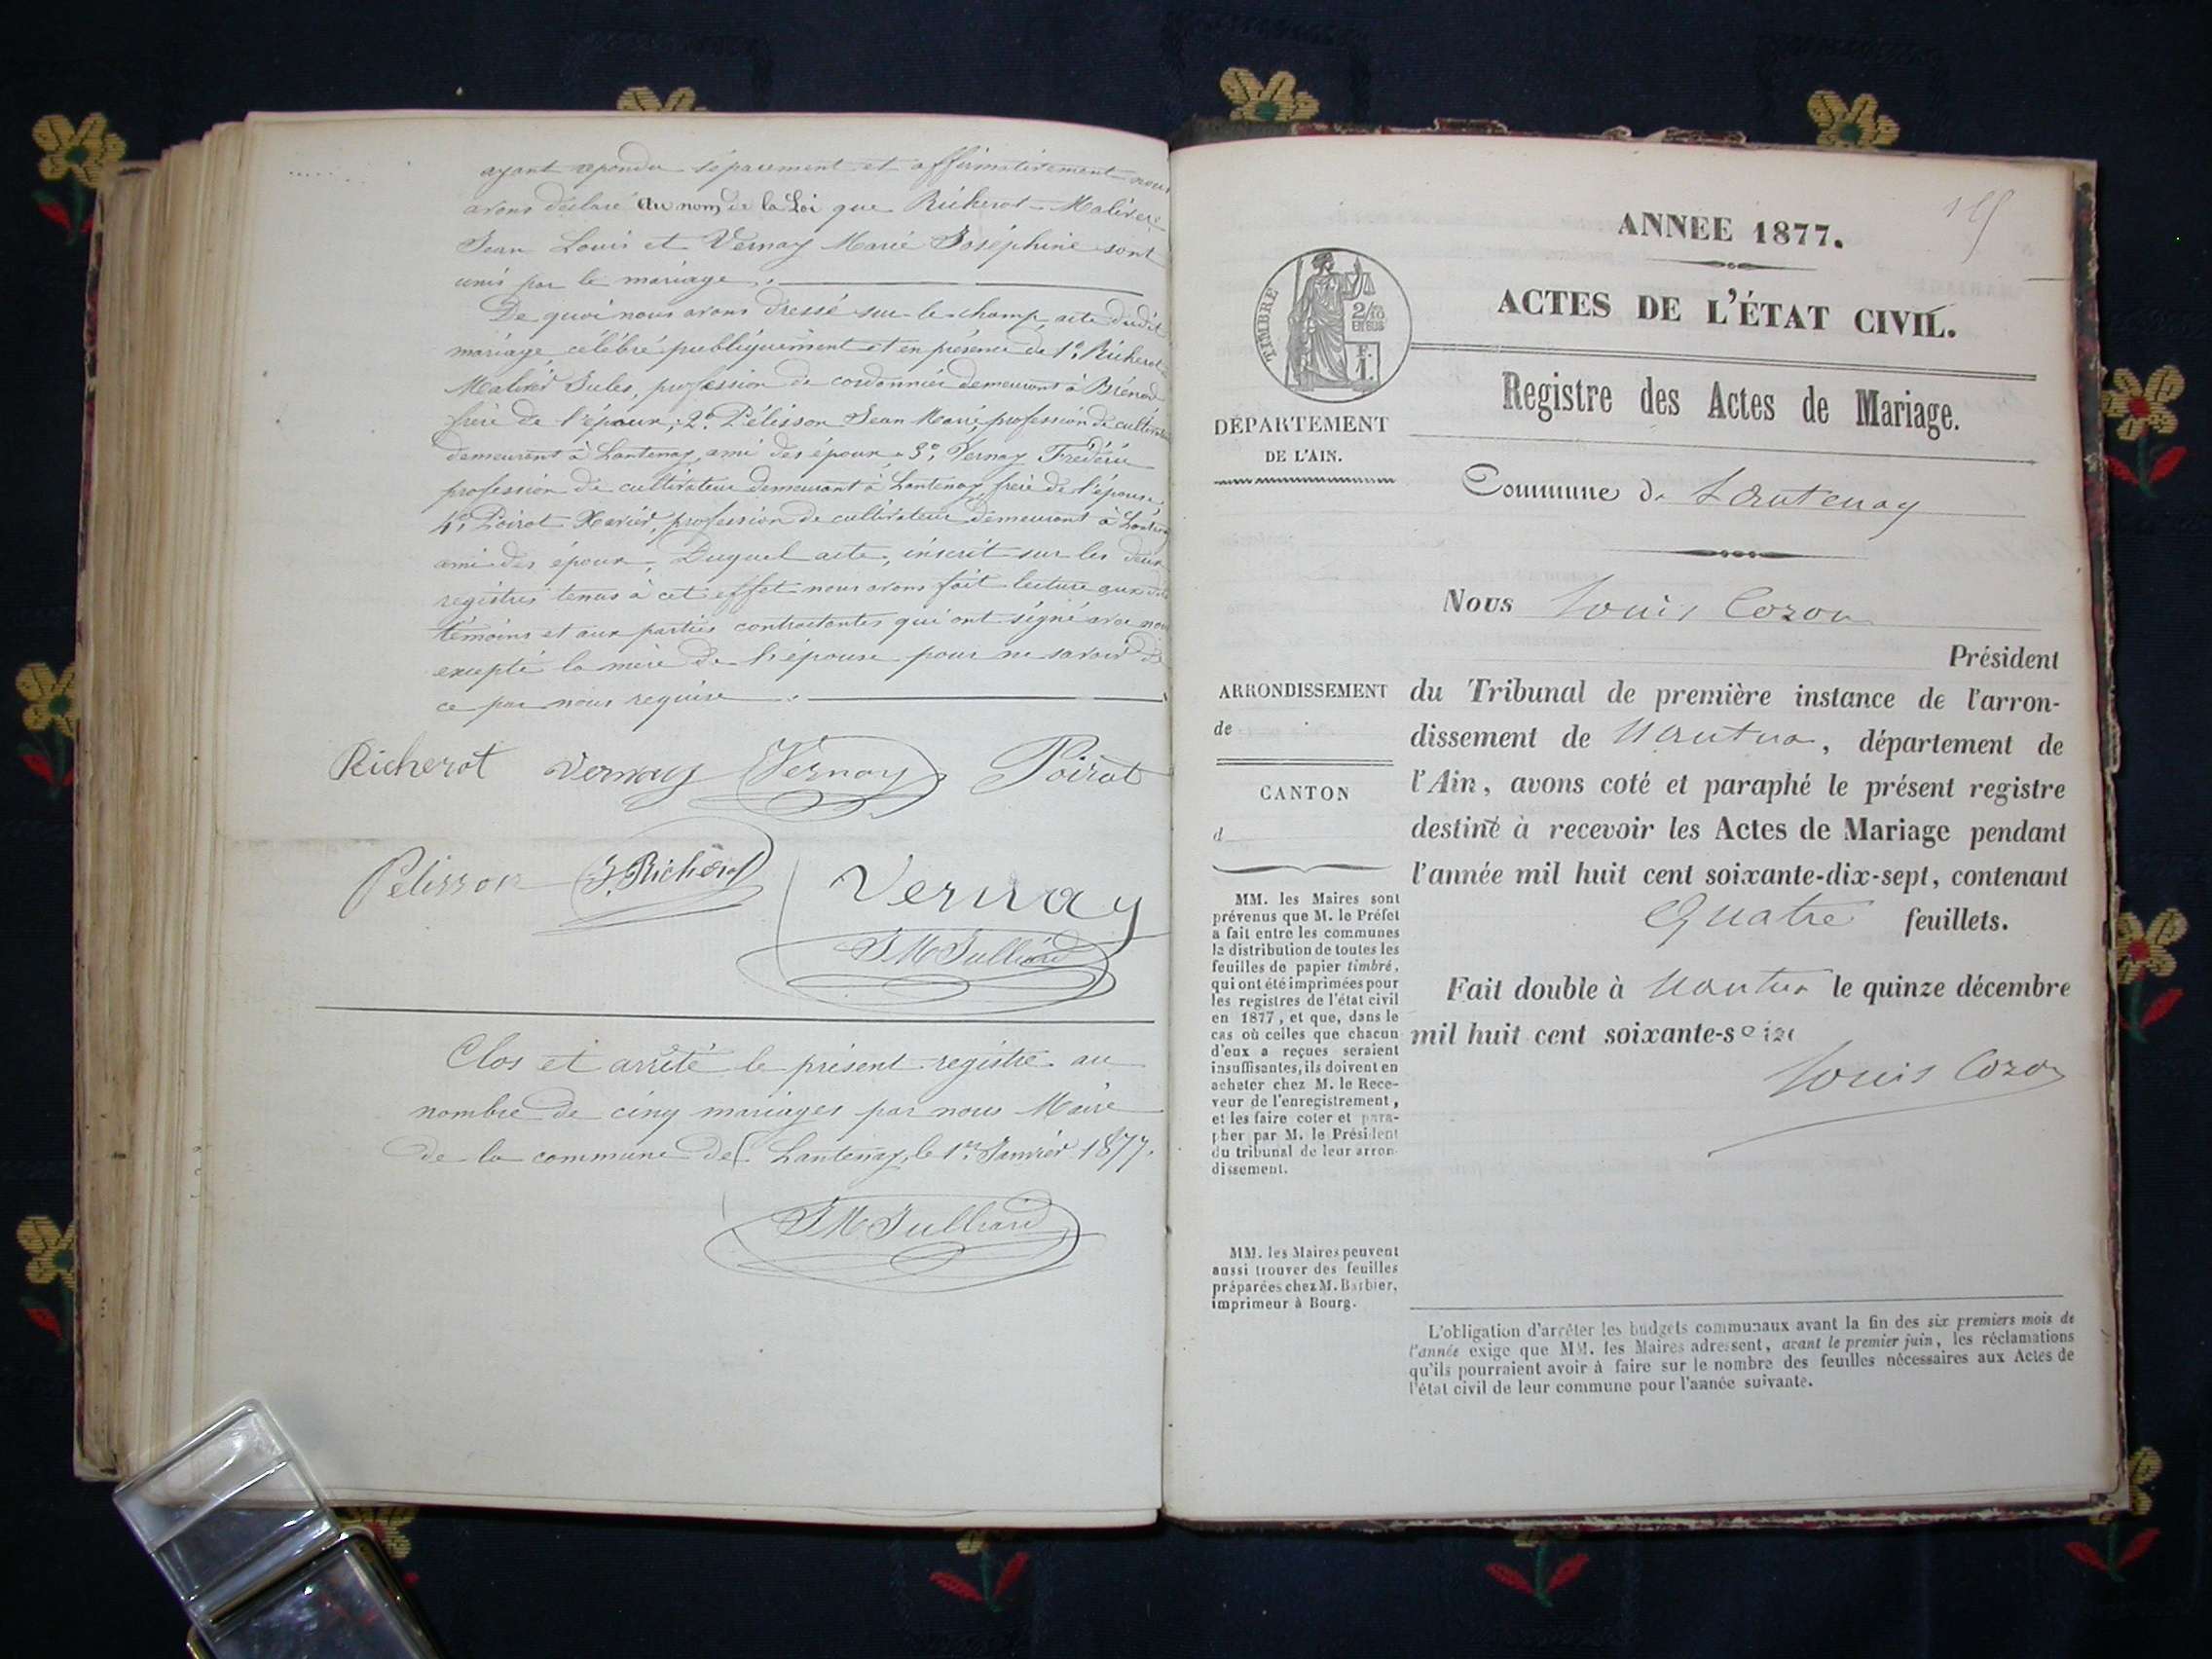 ayant repondu séparement et affirmativement nous
avons déclaré au nom de la Loi que Richerot-Malivert
Jean Louis et Vernay Marie Joséphine sont
unis par le mariage.
De quoi nous avons dressé sur le champ, acte dudit
mariage célébré publiquement et en présence de 1° Richerot
Jules, profession de cordonnier demeurant à Brénod
frère de l'époux, 2° Pélisson Jean Marie, profession de cultivateur
demeurant à Lantenay, ami des époux, 3° Vernay Frédéric
profession de cultivateur demeurant à Lantenay, frère de l'épouse
4° Poirot Xavier, profession de cultivateur demeurant à Lantenay
ami des époux. Duquel acte, inscrit sur les deux
registres tenus à cet effet nous avons fait lecture aux dits
témoins et aux parties contractantes qui ont signé avec nous
excepté la mère de l'épouse pour ne savoir de
ce par nous requise.
Richerot Vernay Vernay Poirot
Pélisson J. Richerot Vernay
J M Julliard
Clos et arrêté le présent registre au
nombre de cinq mariages par nous Maire
de la commune de Lantenay, le 1er Janvier 1877.
J M Julliard
ANNÉE 1877.
ACTES DE L'ÉTAT CIVIL.
TIMBRE
2/10
EN SUS
F.
1.
Registre des Actes de Mariage.
DÉPARTEMENT
DE L'AIN.
Commune de Lantenay
Nous Louis Cozon
Président
ARRONDISSEMENT
de
CANTON
d
du Tribunal de première instance de l'arron-
dissement de Nantua, département de
l'Ain, avons coté et paraphé le présent registre
destiné à recevoir les Actes de Mariage pendant
l'année mil huit cent soixante-dix-sept, contenant
Quatre feuillets.
Fait double à Nantua le quinze décembre
mil huit cent soixante-seize
Louis Cozon
MM. les Maires sont
prévenus que M. le Préfet
a fait entre les communes
la distribution de toutes les
feuilles de papier timbré,
qui ont été imprimées pour
les registres de l'état civil
en 1877, et que, dans le
cas où celles que chacun
d'eux a reçues seraient
insuffisantes, ils doivent en
acheter chez M. le Rece-
veur de l'enregistrement,
et les faire coter et para-
pher par M. le Président
du tribunal de leur arron-
dissement.
MM. les Maires peuvent
aussi trouver des feuilles
préparées chez M. Barbier,
imprimeur à Bourg.
L'obligation d'arrêter les budgets communaux avant la fin des six premiers mois de
l'année exige que MM. les Maires adressent, avant le premier juin, les réclamations
qu'ils pourraient avoir à faire sur le nombre des feuilles nécessaires aux Actes de
l'état civil de leur commune pour l'année suivante.